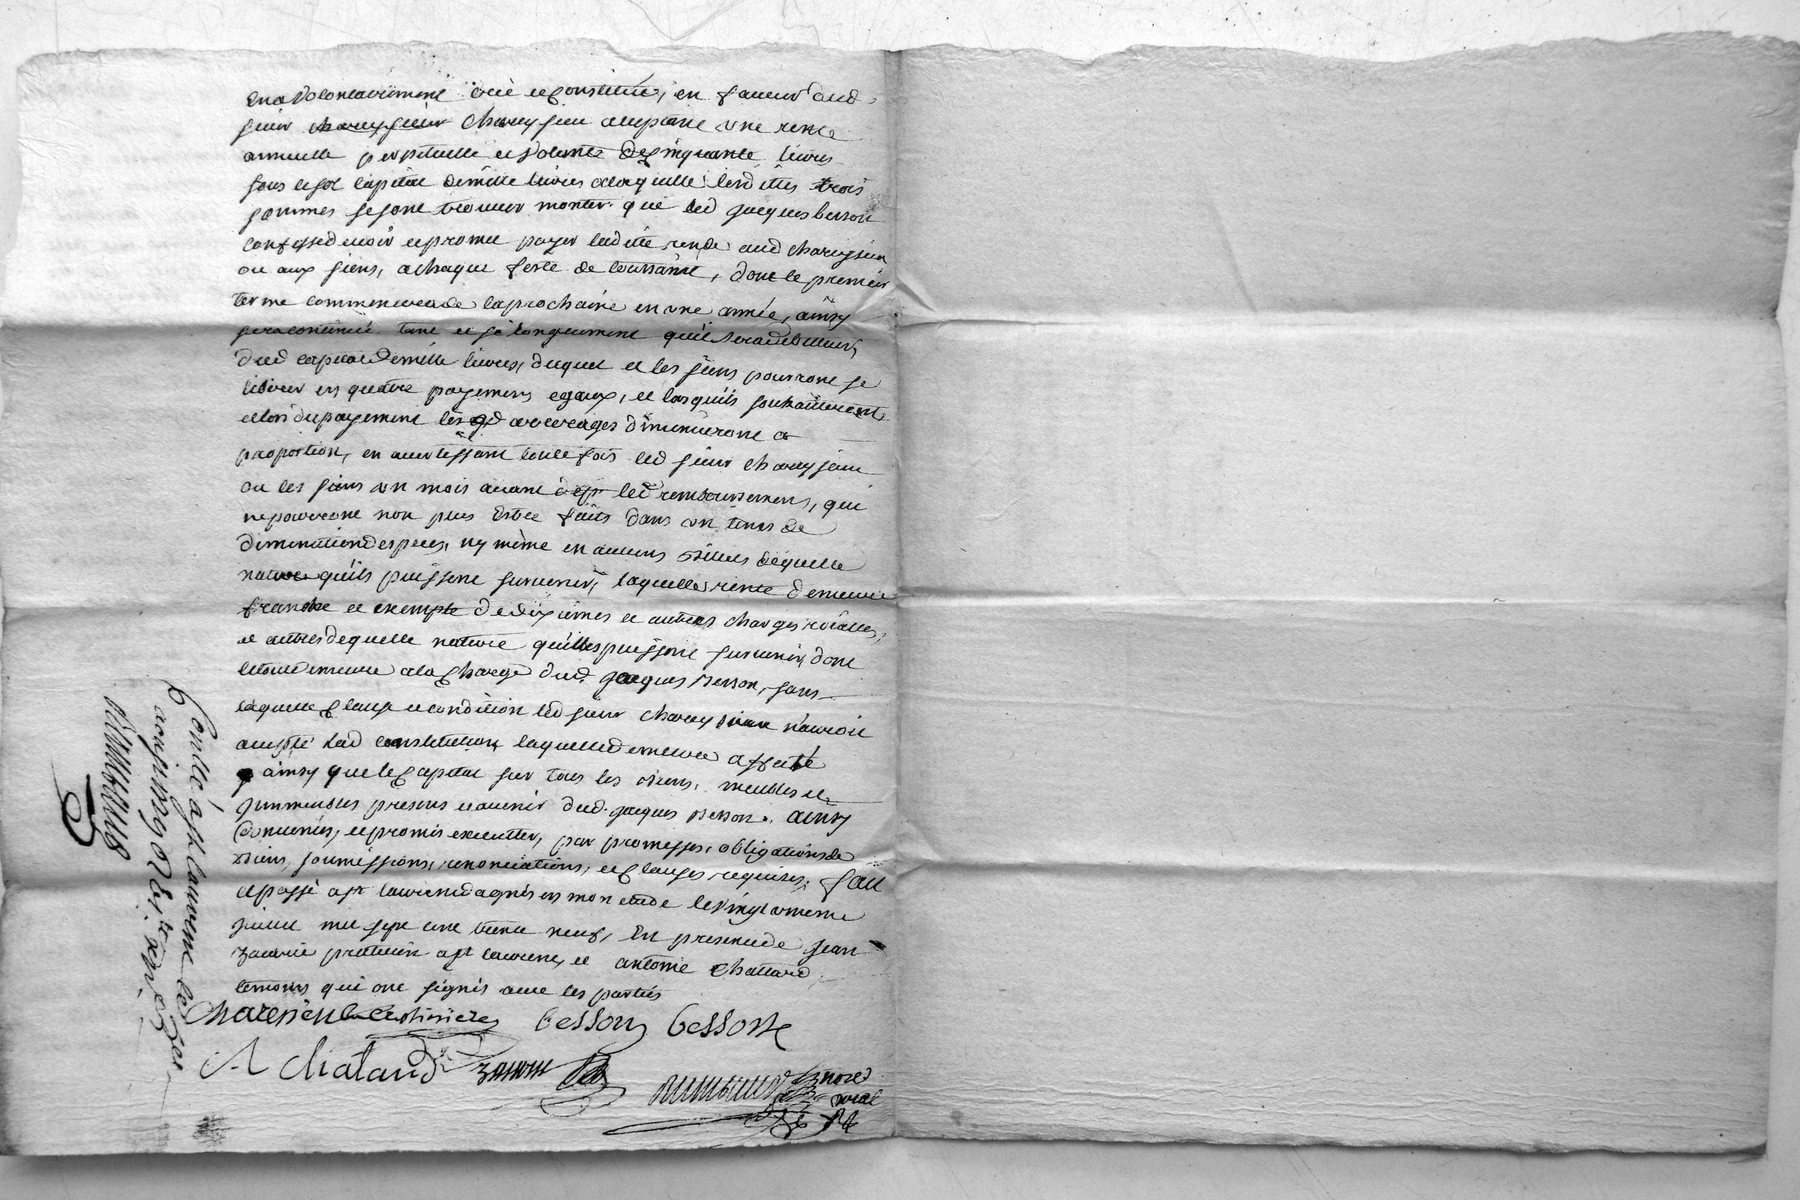 en a volontairement créé et constitué, en faveur dud
sieur chareysieu acceptant une rente
annuelle perpetuelle et volante de cinquante livres
sous le sol capital de mille livres a laquelle lesdittes trois
sommes se sont trouver monter que led jacques besson
confesse devoir et promet payer laditte rente aud chareysieu
ou aux siens, a chaque feste de toussaint, dont le premier
terme commencera de la prochaine en une année, ainsy
sera continué tant et si longuement qu'il sera debiteur
dud capital de mille livres, duquel et les siens pourront se
liberer en quatre payemens egaux, et lorsqu'ils souhaitteront
et lors du payement les arrerages diminueront a
proportion, en avertissant toutefois led sieur chareysieu
ou les siens un mois avant led remboursemens, qui
ne pourront non plus estre faits dans un tems de
diminution d'especes, ny même en aucuns billets de quelle
nature qu'ils puissent survenir, laquelle rente demeure
franche et exempte de dixiemes et autres charges roialles,
et autres de quelle nature qu'elles puissent survenir, dont
le tout demeure a la charge dud. jacques besson, sans
laquelle clause et condition led sieur charey n'auroit
accepté lad constitution laquelle demeure affecté
ainsy que le capital sur tous les biens, meubles et
immeubles presens et avenir dud. jacques besson. ainsy
convenus, et promis executter, par promesses, obligations de
biens, soumissions, renonciations, et clauses requises. fait
et passé a st laurent d'agnés en mon etude le vingt uneme
juillet mil sept cent trente neuf, en presence de jean
a st laurent, et antoine chattard
temoins qui ont signés avec les parties
besson besson
A chatard
not
roial
Contlé à st laurent le